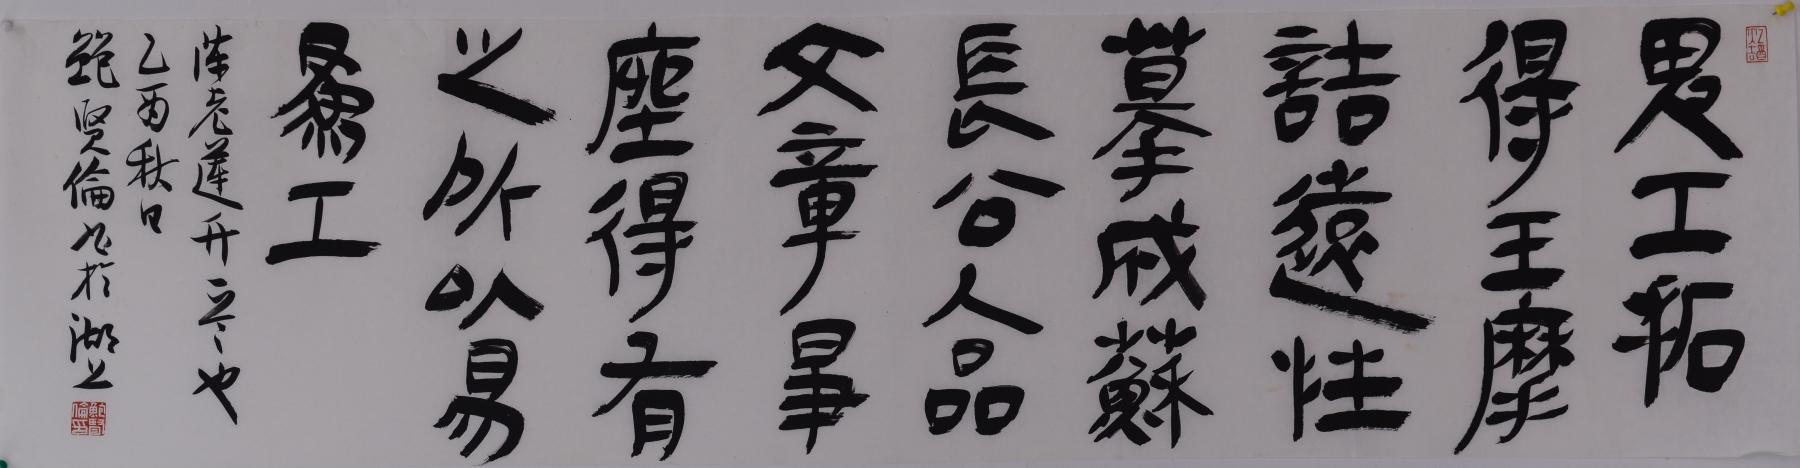 工拓
得王摩
詰遠性
摹成蘇
長公人品
文章畢
塵得有
之所以易
為工
陳老蓮也
乙酉秋日
鮑賢倫於湖上